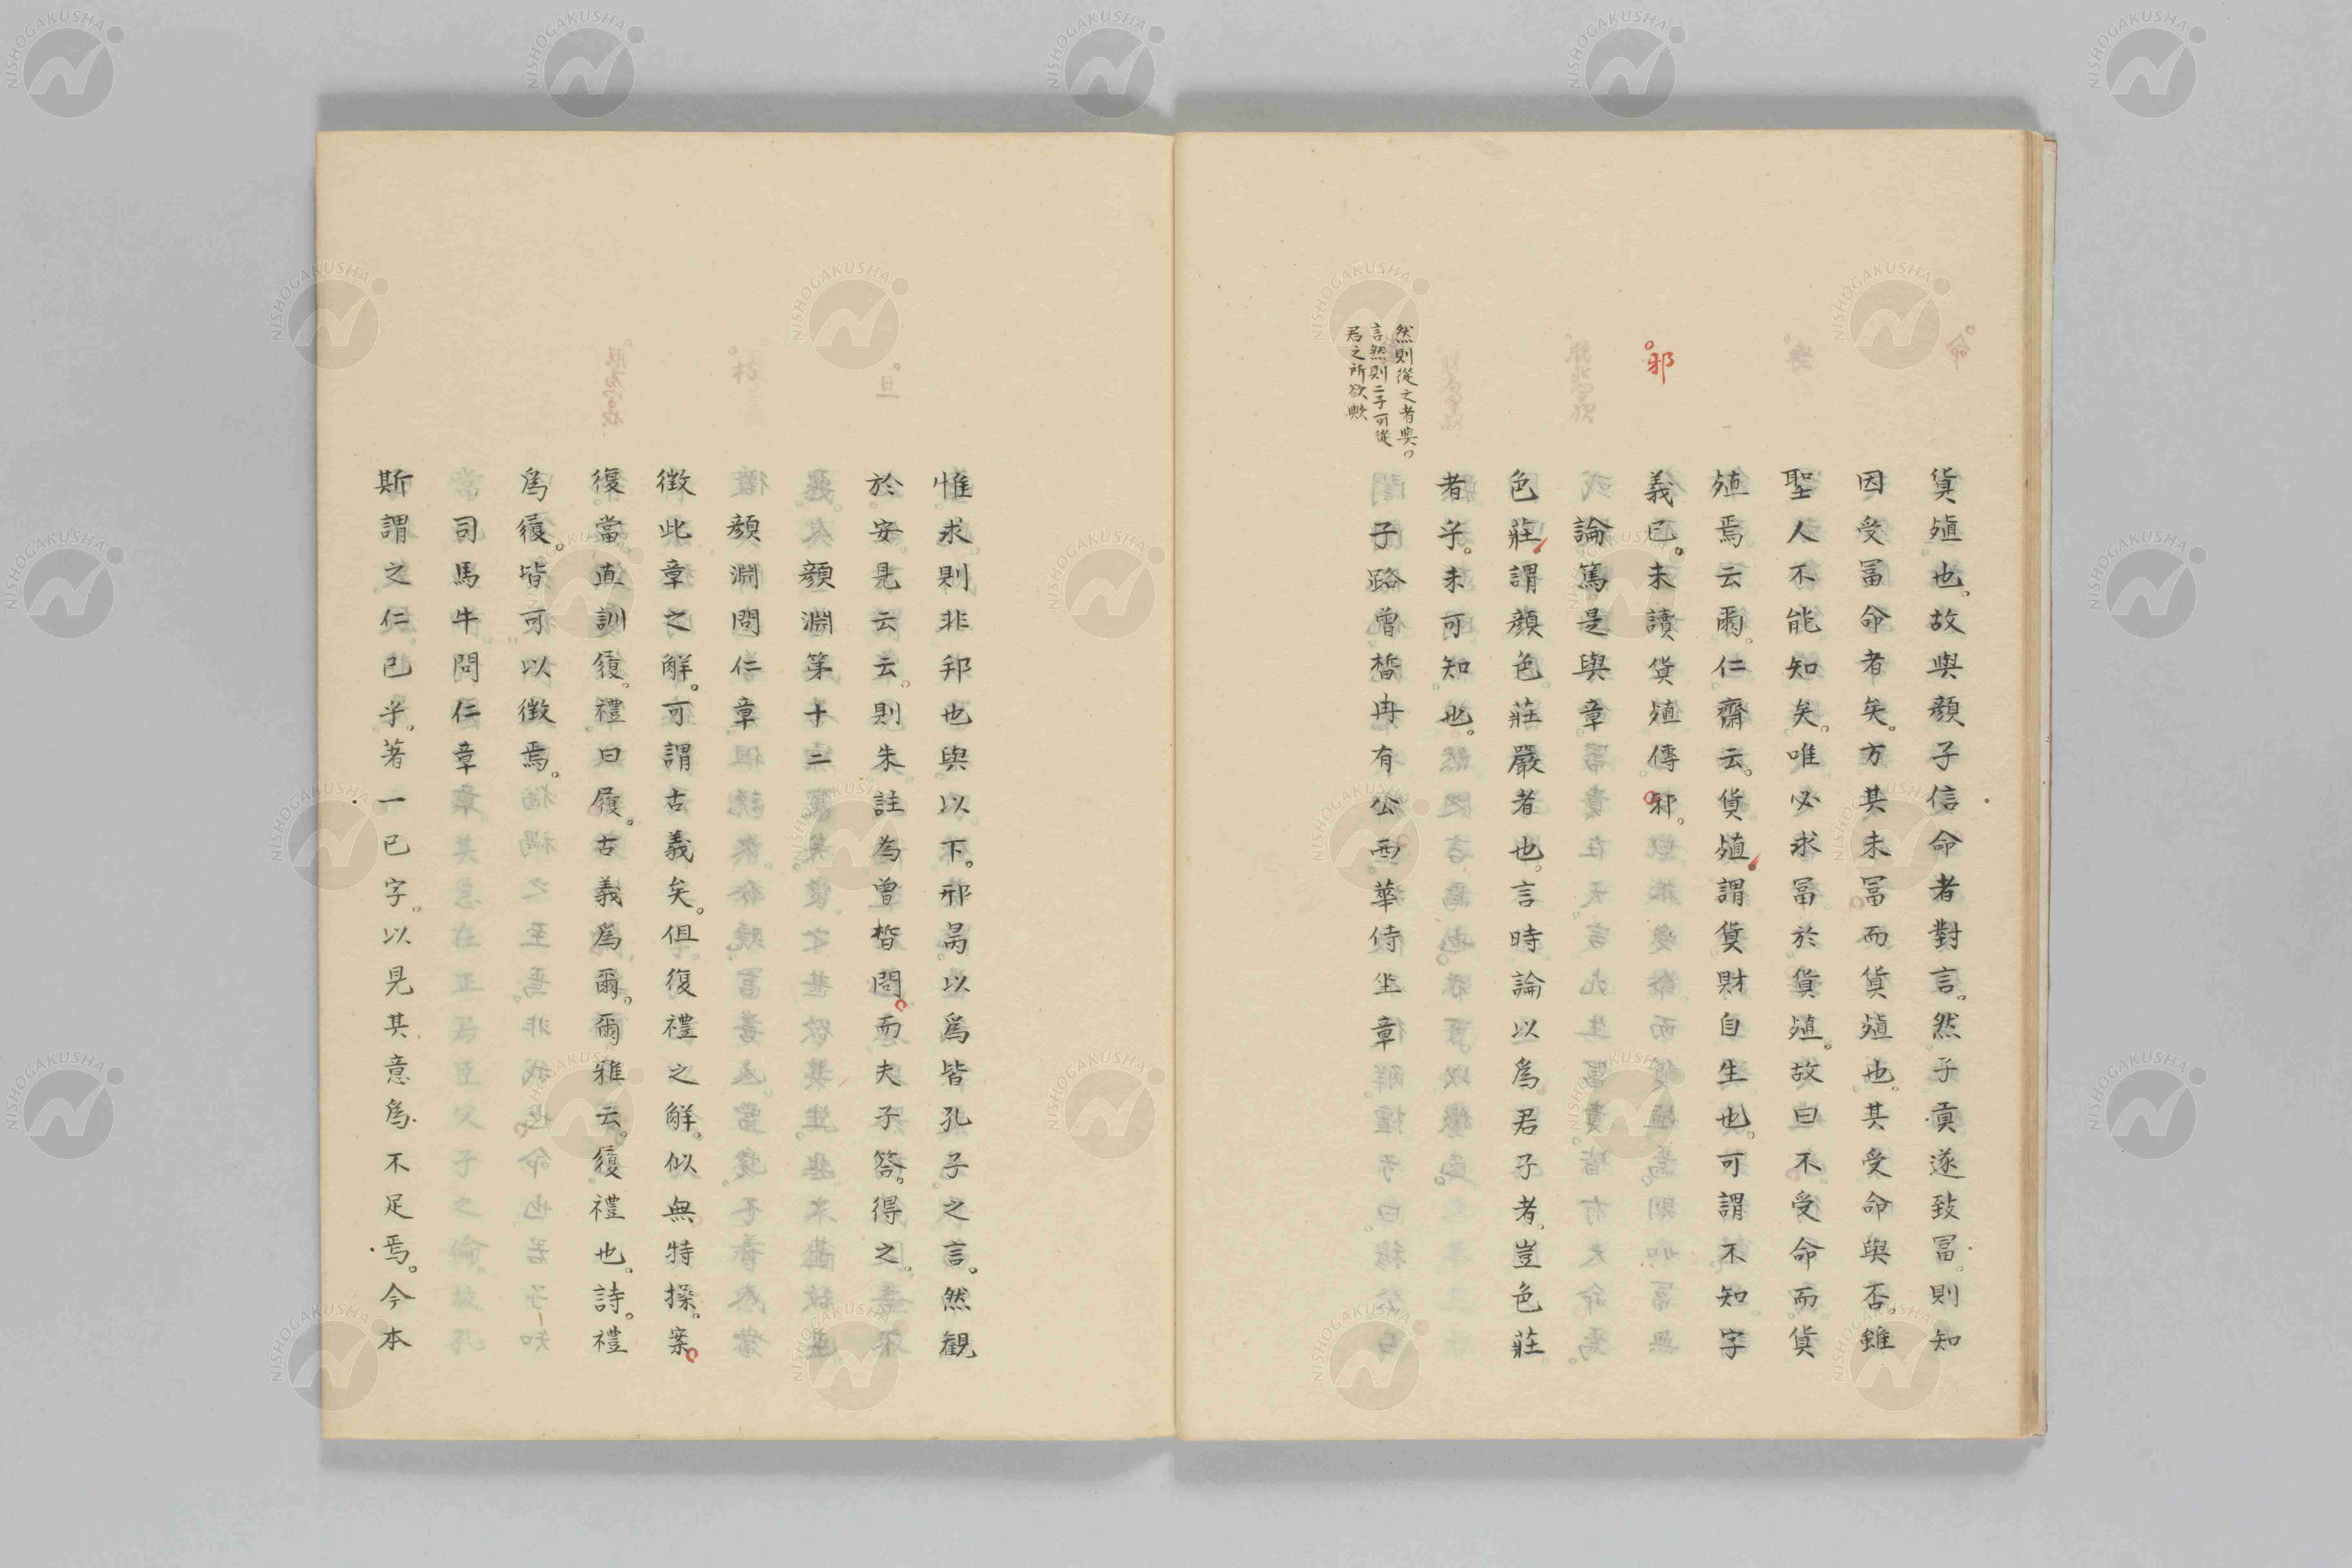 貨殖也。故與顏子信命者對言。然子貢遂致冨。則知
因受冨命者矣。方其未冨而貨殖也。其受命與否。雖
聖人不能知矣。唯必求冨於貨殖。故曰不受命而貨
殖焉云爾。仁齋云。貨殖謂貨財自生也。可謂不知字
邪
義已。未讀貨殖傳邪。
論篤是與章
色莊謂顏色莊嚴者也。言時論以爲君子者。豈色莊
者乎。未可知也。
然則從之者與。
言然則二子可從
君之所欲歟
子路曾晳冉有公西華侍坐章
惟求則非邦也與以下。邢昺以爲皆孔子之言。然觀
於安見云云。則朱註為曾晳問。而夫子答。得之。
顏淵第十二
顏淵問仁章
徵此章之解。可謂古義矣。但復禮之解。似無特操。案
復當直訓履。禮曰履。古義爲爾。爾雅云。履禮也。詩。禮
爲履。皆可以徵焉。
司馬牛問仁章
斯謂之仁已乎。著一已字。以見其意爲不足焉。今本
NISHOGAKUSHA